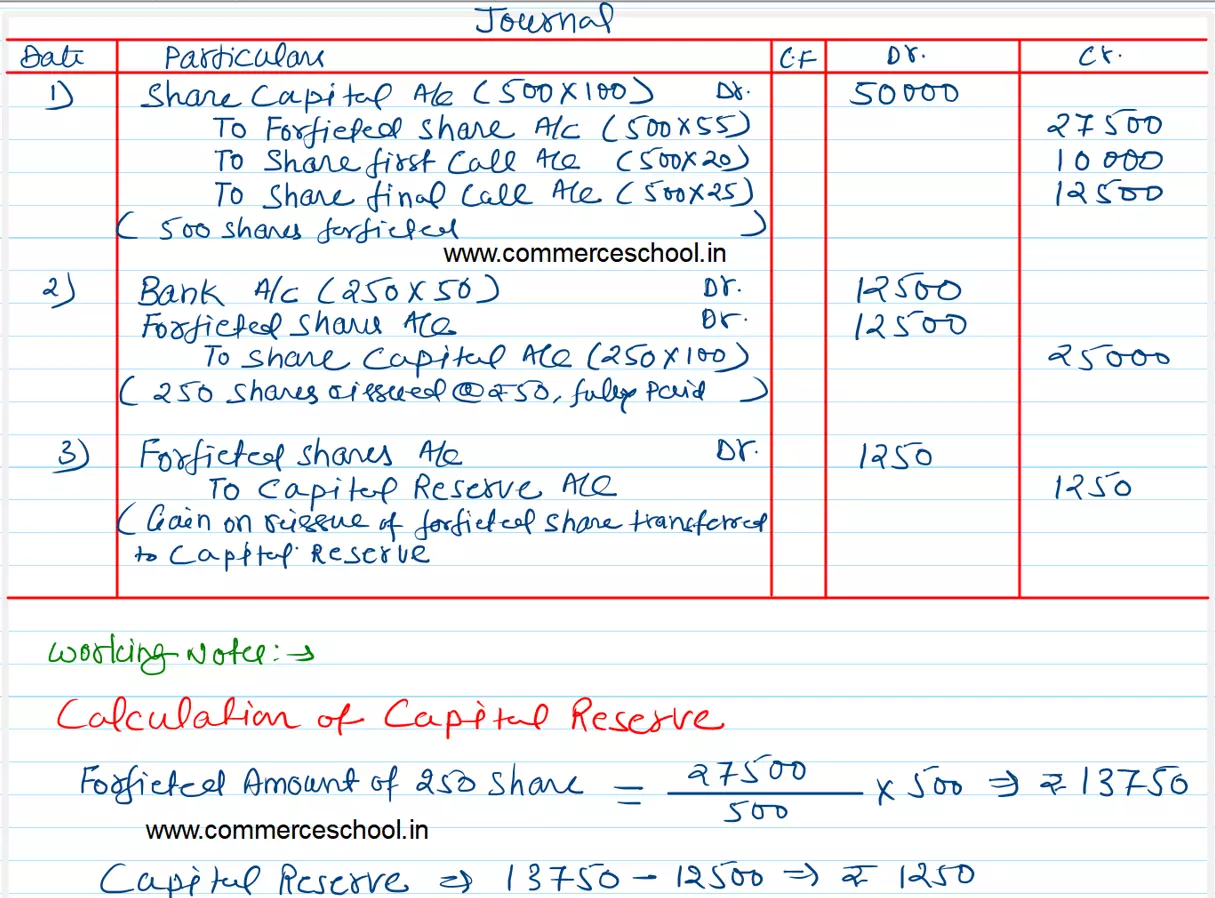 Journal
Date Particulars C.F Dr. Cr.
1) Share Capital A/c (500X100) Dr. 50000
To Forfieted Share A/c (500X55) 27500
To Share first Call A/c (500X20) 10000
To Share final Call A/c (500X25) 12500
( 500 shares forfieted )
www.commerceschool.in
2) Bank A/c (250X50) Dr. 12500
Forfieted Share A/c Dr. 12500
To Share Capital A/c (250X100) 25000
( 250 Shares reissued @ ₹50, fully Paid )
3) Forfieted Shares A/c Dr. 1250
To Capital Reserve A/c 1250
( Gain on reissue of forfieted share transferred
to Capital Reserve
Working Note: →
Calculation of Capital Reserve
Forfieted Amount of 250 Share = 27500 / 500 X 500 ⇒ ₹ 13750
www.commerceschool.in
Capital Reserve ⇒ 13750 - 12500 ⇒ ₹ 1250